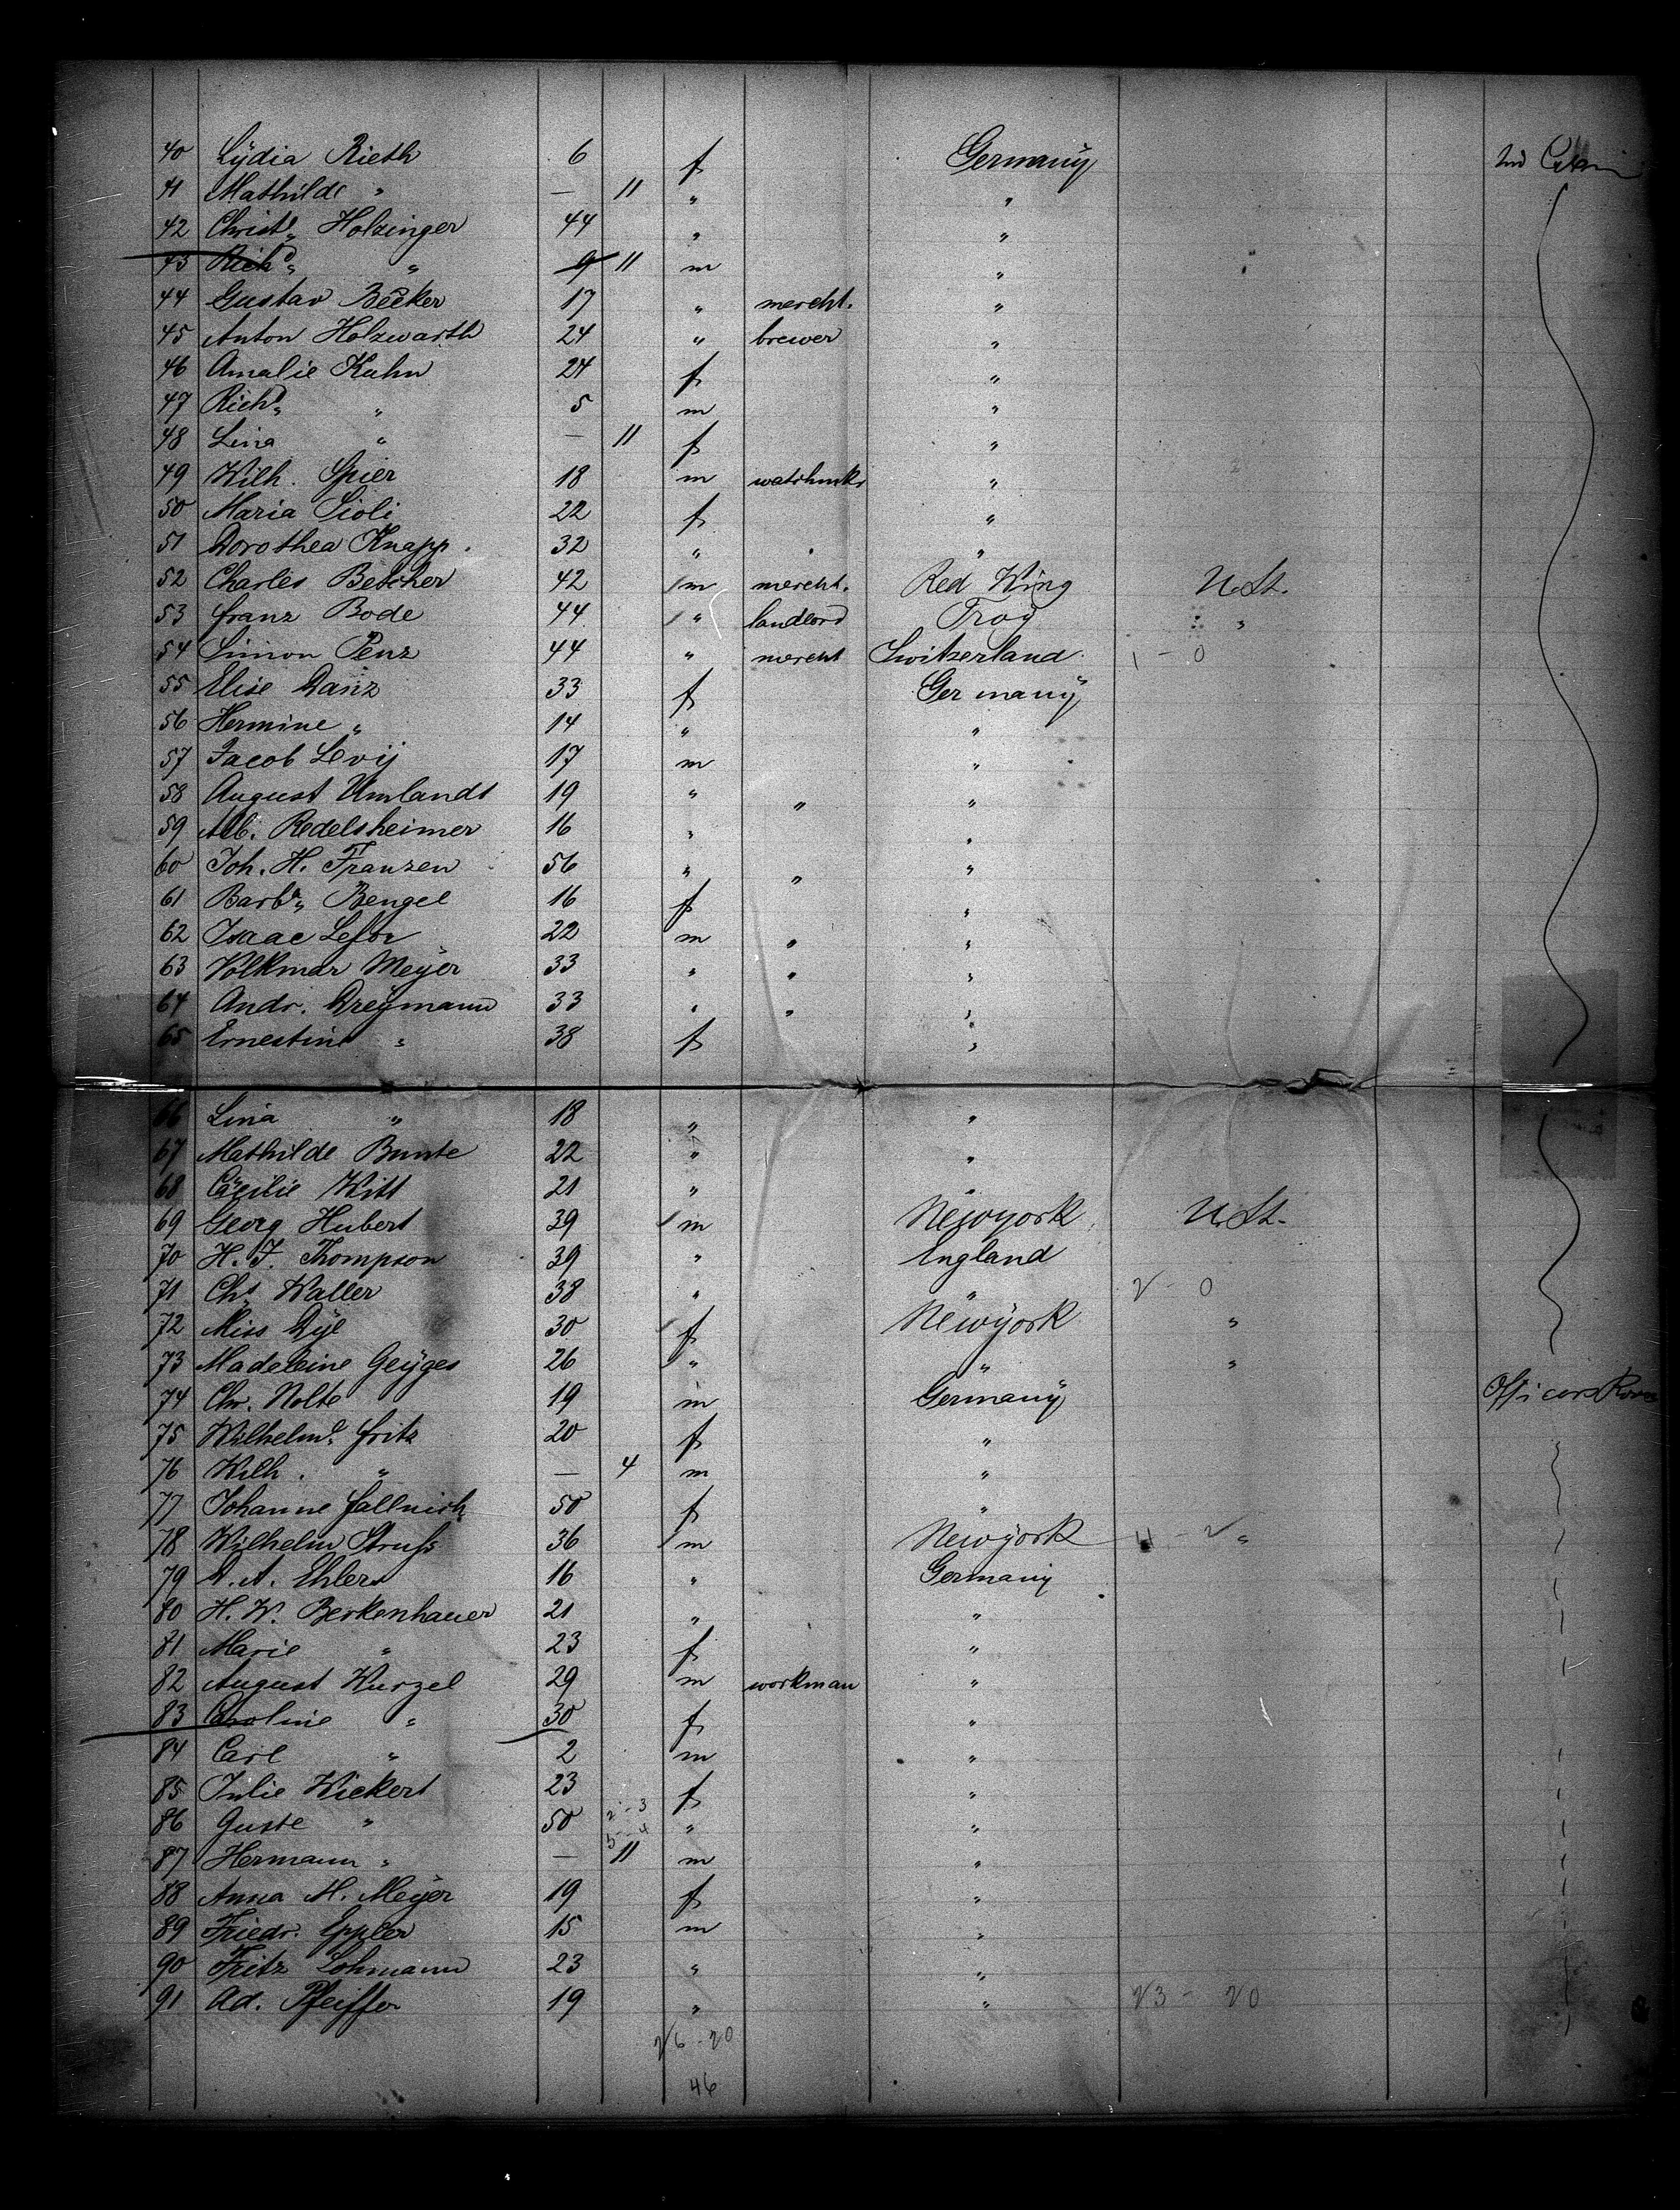 40 Lydia Rieth 6 f Germany 2nd Cabin
41 Mathilde " — 11 " "
42 Christ. Holzinger 44 " "
43 Richd. " 9 11 m "
44 Gustav Becker 17 " mercht. "
45 Anton Holzwarth 24 " brewer "
46 Amalie Kuhn 24 f "
47 Richd. " 5 m "
48 Lina " — 11 f "
49 Wilh. Spier 18 m watchmkr "
50 Maria Sioli 22 f "
51 Dorothea Knapp. 32 " "
52 Charles Betcher 42 m mercht. Red Wing U.St.
53 Franz Bode 44 " landlord Troy "
54 Simon Penz 44 " mercht Switzerland 1 - 0
55 Elise Danz 33 f Germany
56 Hermine " 14 " "
57 Jacob Levy 17 m "
58 August Umlandt 19 " " "
59 Alb. Redelsheimer 16 " "
60 Joh. H. Franzen 56 " " "
61 Barba. Bengel 16 f "
62 Isaac Lefor 22 m " "
63 Volkmar Meyer 33 " " "
64 Andr. Dreymann 33 " " "
65 Ernestine " 38 f "
66 Lina " 18 " "
67 Mathilde Bunte 22 " "
68 Cäcilie Witt 21 " "
69 Georg Hubert 39 m Newyork U.St.
70 H. J. Thompson 39 " England
71 Chs. Waller 38 " " 2 - 0
72 Miss Dye 30 f Newyork "
73 Madeleine Geyges 26 " " "
74 Chr. Nolte 19 m Germany Officers Room
75 Wilhelme. Fritz 20 f "
76 Wilh. " — 4 m "
77 Johanne Fallnich 50 f "
78 Wilhelm Struss 36 m Newyork 4 - 2 "
79 D. A. Ehlers 16 " Germany
80 H. W. Berkenhauer 21 " "
81 Marie " 23 f "
82 August Wurzel 29 m workman "
83 Caroline " 30 f "
84 Carl " 2 m "
85 Julie Wickert 23 f "
86 Guste " 50 2 - 3 5 - 4 " "
87 Hermann " — 11 m "
88 Anna M. Meyer 19 f "
89 Friedr. Eppler 15 m "
90 Fritz Lohmann 23 " "
91 Ad. Pfeiffer 19 " " 23 - 20
26 - 20
46